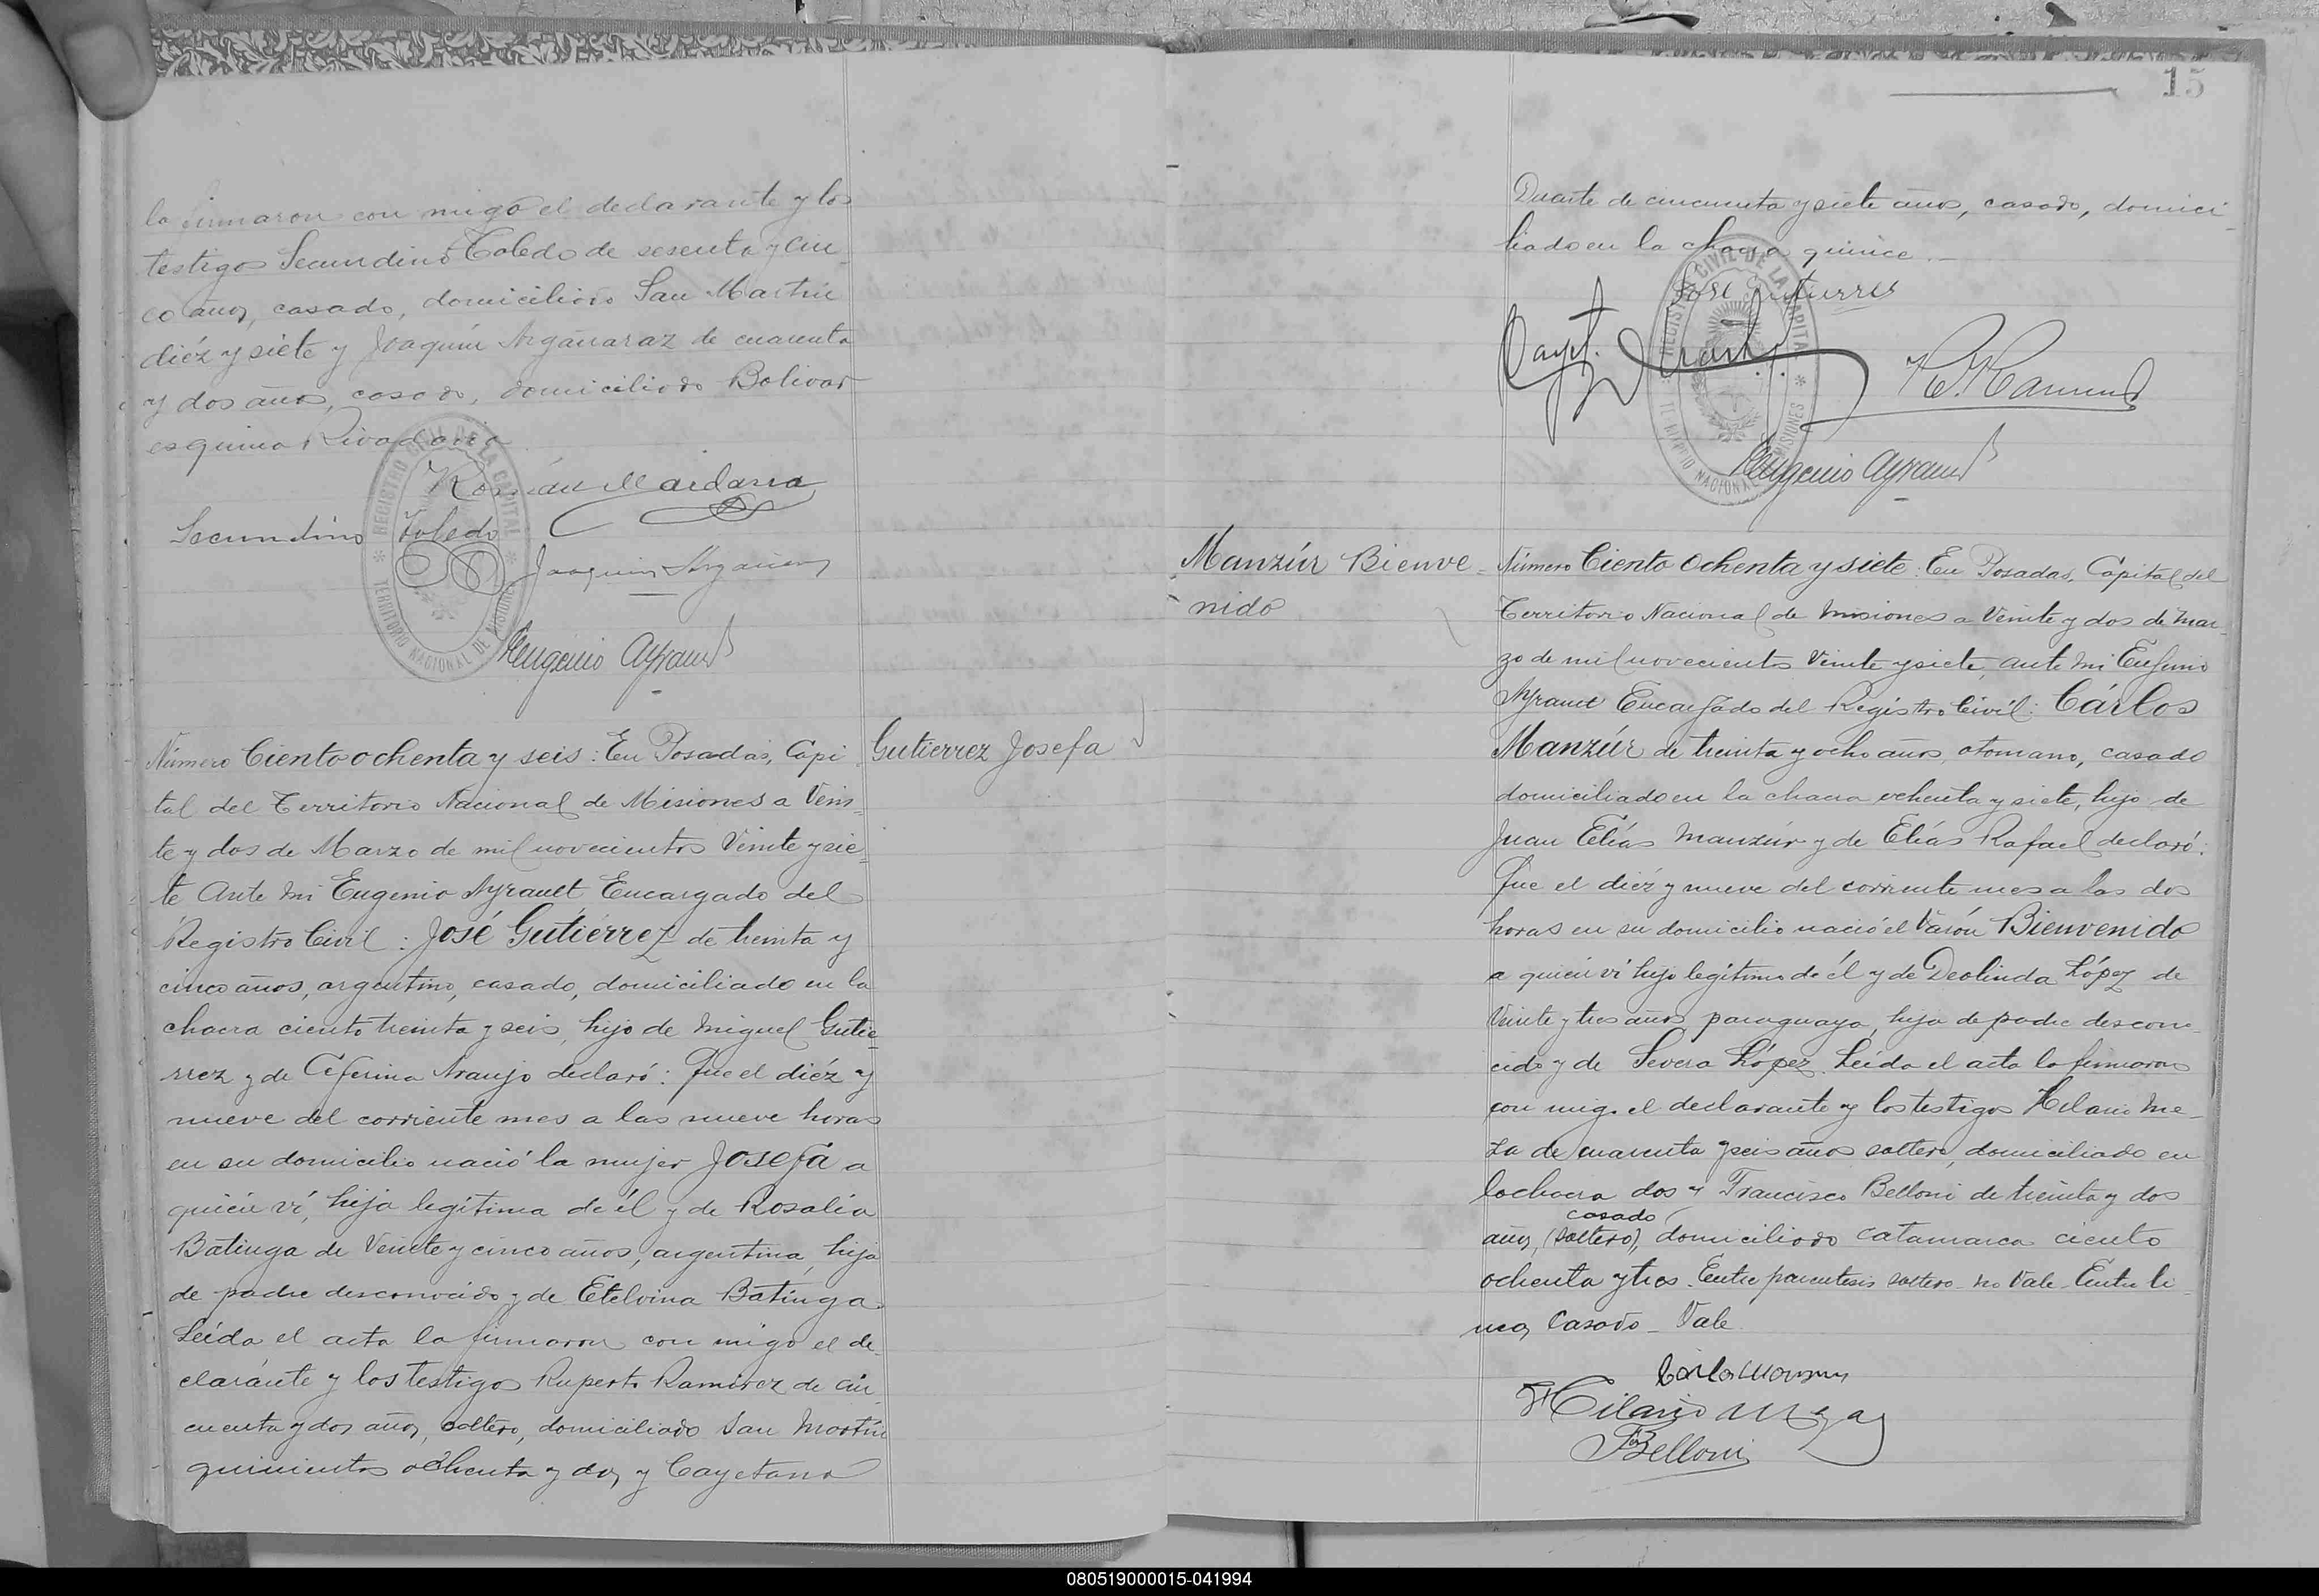 la firmaron con migo el declarante y los
testigos Secundino Toledo de sesenta y cin
co años, casado, domiciliado San Martin
diéz y siete y Joaquin Argañaraz de cuarenta
y dos años, casado, domiciliado Bolivar
esquina Rivadavia
Román Maidana
Secundino Toledo
Joaquin Argañaraz
Eugenio Ayrault
REGISTRO CIVIL DE LA CAPITAL
TERRITORIO NACIONAL DE MISIONES
Gutierrez Josefa
Número Ciento ochenta y seis: En Posadas, Capi
tal del Territorio Nacional de Misiones a Vein
te y dos de Marzo de mil novecientos Veinte y sie
te Ante mi Eugenio Ayrault Encargado del
Registro Civil: José Gutiérrez de treinta y
cinco años, argentino, casado, domiciliado en la
chacra ciento treinta y seis, hijo de Miguel Gutie
rrez y de Ceferina Araujo declaró: Que el diéz y
nueve del corriente mes a las nueve horas
en su domicilio nació la mujer Josefa a
quien ví, hija legítima de él y de Rosalia
Batinga de Veinte y cinco años, argentina, hija
de padre desconocido y de Etelvina Batinga.
Leída el acta la firmaron con migo el de
clarante y los testigos Ruperto Ramirez de cin
cuenta y dos años, soltero, domiciliado San Martin
quinientos ochenta y dos y Cayetano
15
Duarte de cincuenta y siete años, casado, domici
liado en la chacra quince.
José Gutierres
Cayet. Duarte
R. Ramirez
Eugenio Ayrault
REGISTRO CIVIL DE LA CAPITAL
TERRITORIO NACIONAL DE MISIONES
Manzúr Bienve
nido
Número Ciento Ochenta y siete: En Posadas, Capital del
Territorio Nacional de Misiones a Veinte y dos de Mar
zo de mil novecientos Veinte y siete, ante mi Eugenio
Ayrault Encargado del Registro Civil: Cárlos
Manzúr de treinta y ocho años, otomano, casado
domiciliado en la chacra ochenta y siete, hijo de
Juan Elías Manzúr y de Elías Rafael declaró:
Que el diéz y nueve del corriente mes a las dos
horas en su domicilio nació el Varón Bienvenido
a quien ví hijo legítimo de él y de Deolinda López de
Veinte y tres años, paraguaya, hija de padre descono
cido y de Severa López. Leída el acta la firmaron
con migo el declarante y los testigos Hilario Me
za de cuarenta y seis años soltero, domiciliado en
la chacra dos y Francisco Belloni de treinta y dos
casado
años, (soltero), domiciliado Catamarca ciento
ochenta y tres. Entre parentesis soltero no Vale. Entre li
neas Casado _ Vale.
Carlos Manzur
Hilario Meza
F. Belloni
080519000015-041994